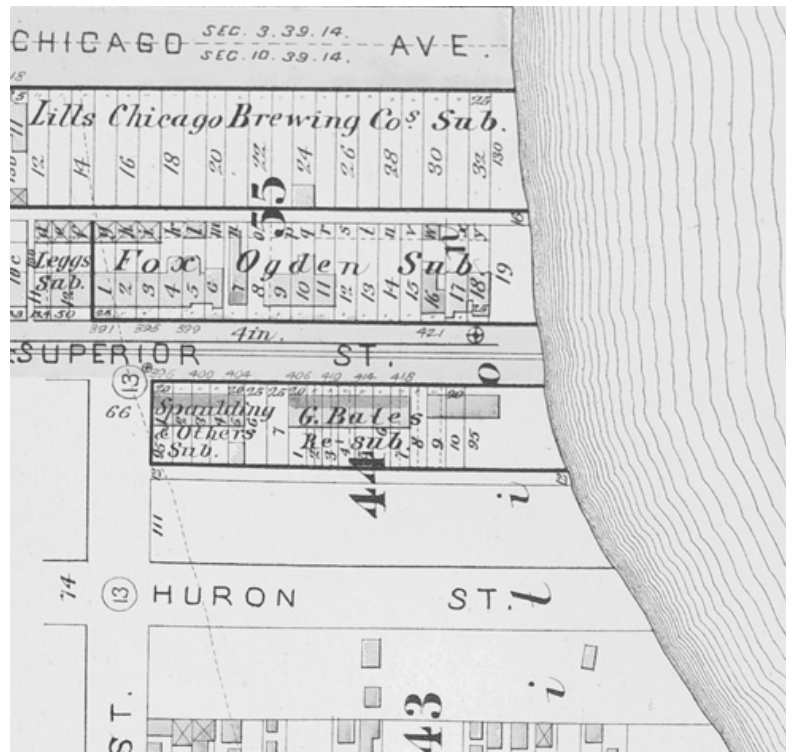 CHICAGO SEC. 3.39.14. AVE.
SEC. 10.39.14.
18
Lills Chicago Brewing Cos Sub.
25
12 14 16 18 20 22 24 26 28 30 32 130
55
g h i k l m n o p q r s t u v w x y
Leggs Sub.
Fox Ogden Sub
1 2 3 4 5 6 7 8 9 10 11 12 13 14 15 16 17 18 19
391 395 399 4in. 421
SUPERIOR ST.
13
396 400 404 406 410 414 418
66
Spaulding & Others Sub.
G. Bates Re-sub.
7 1 2 3 4 6 7 8 9 10 25
44
111
74
13 HURON ST.
43
ST.